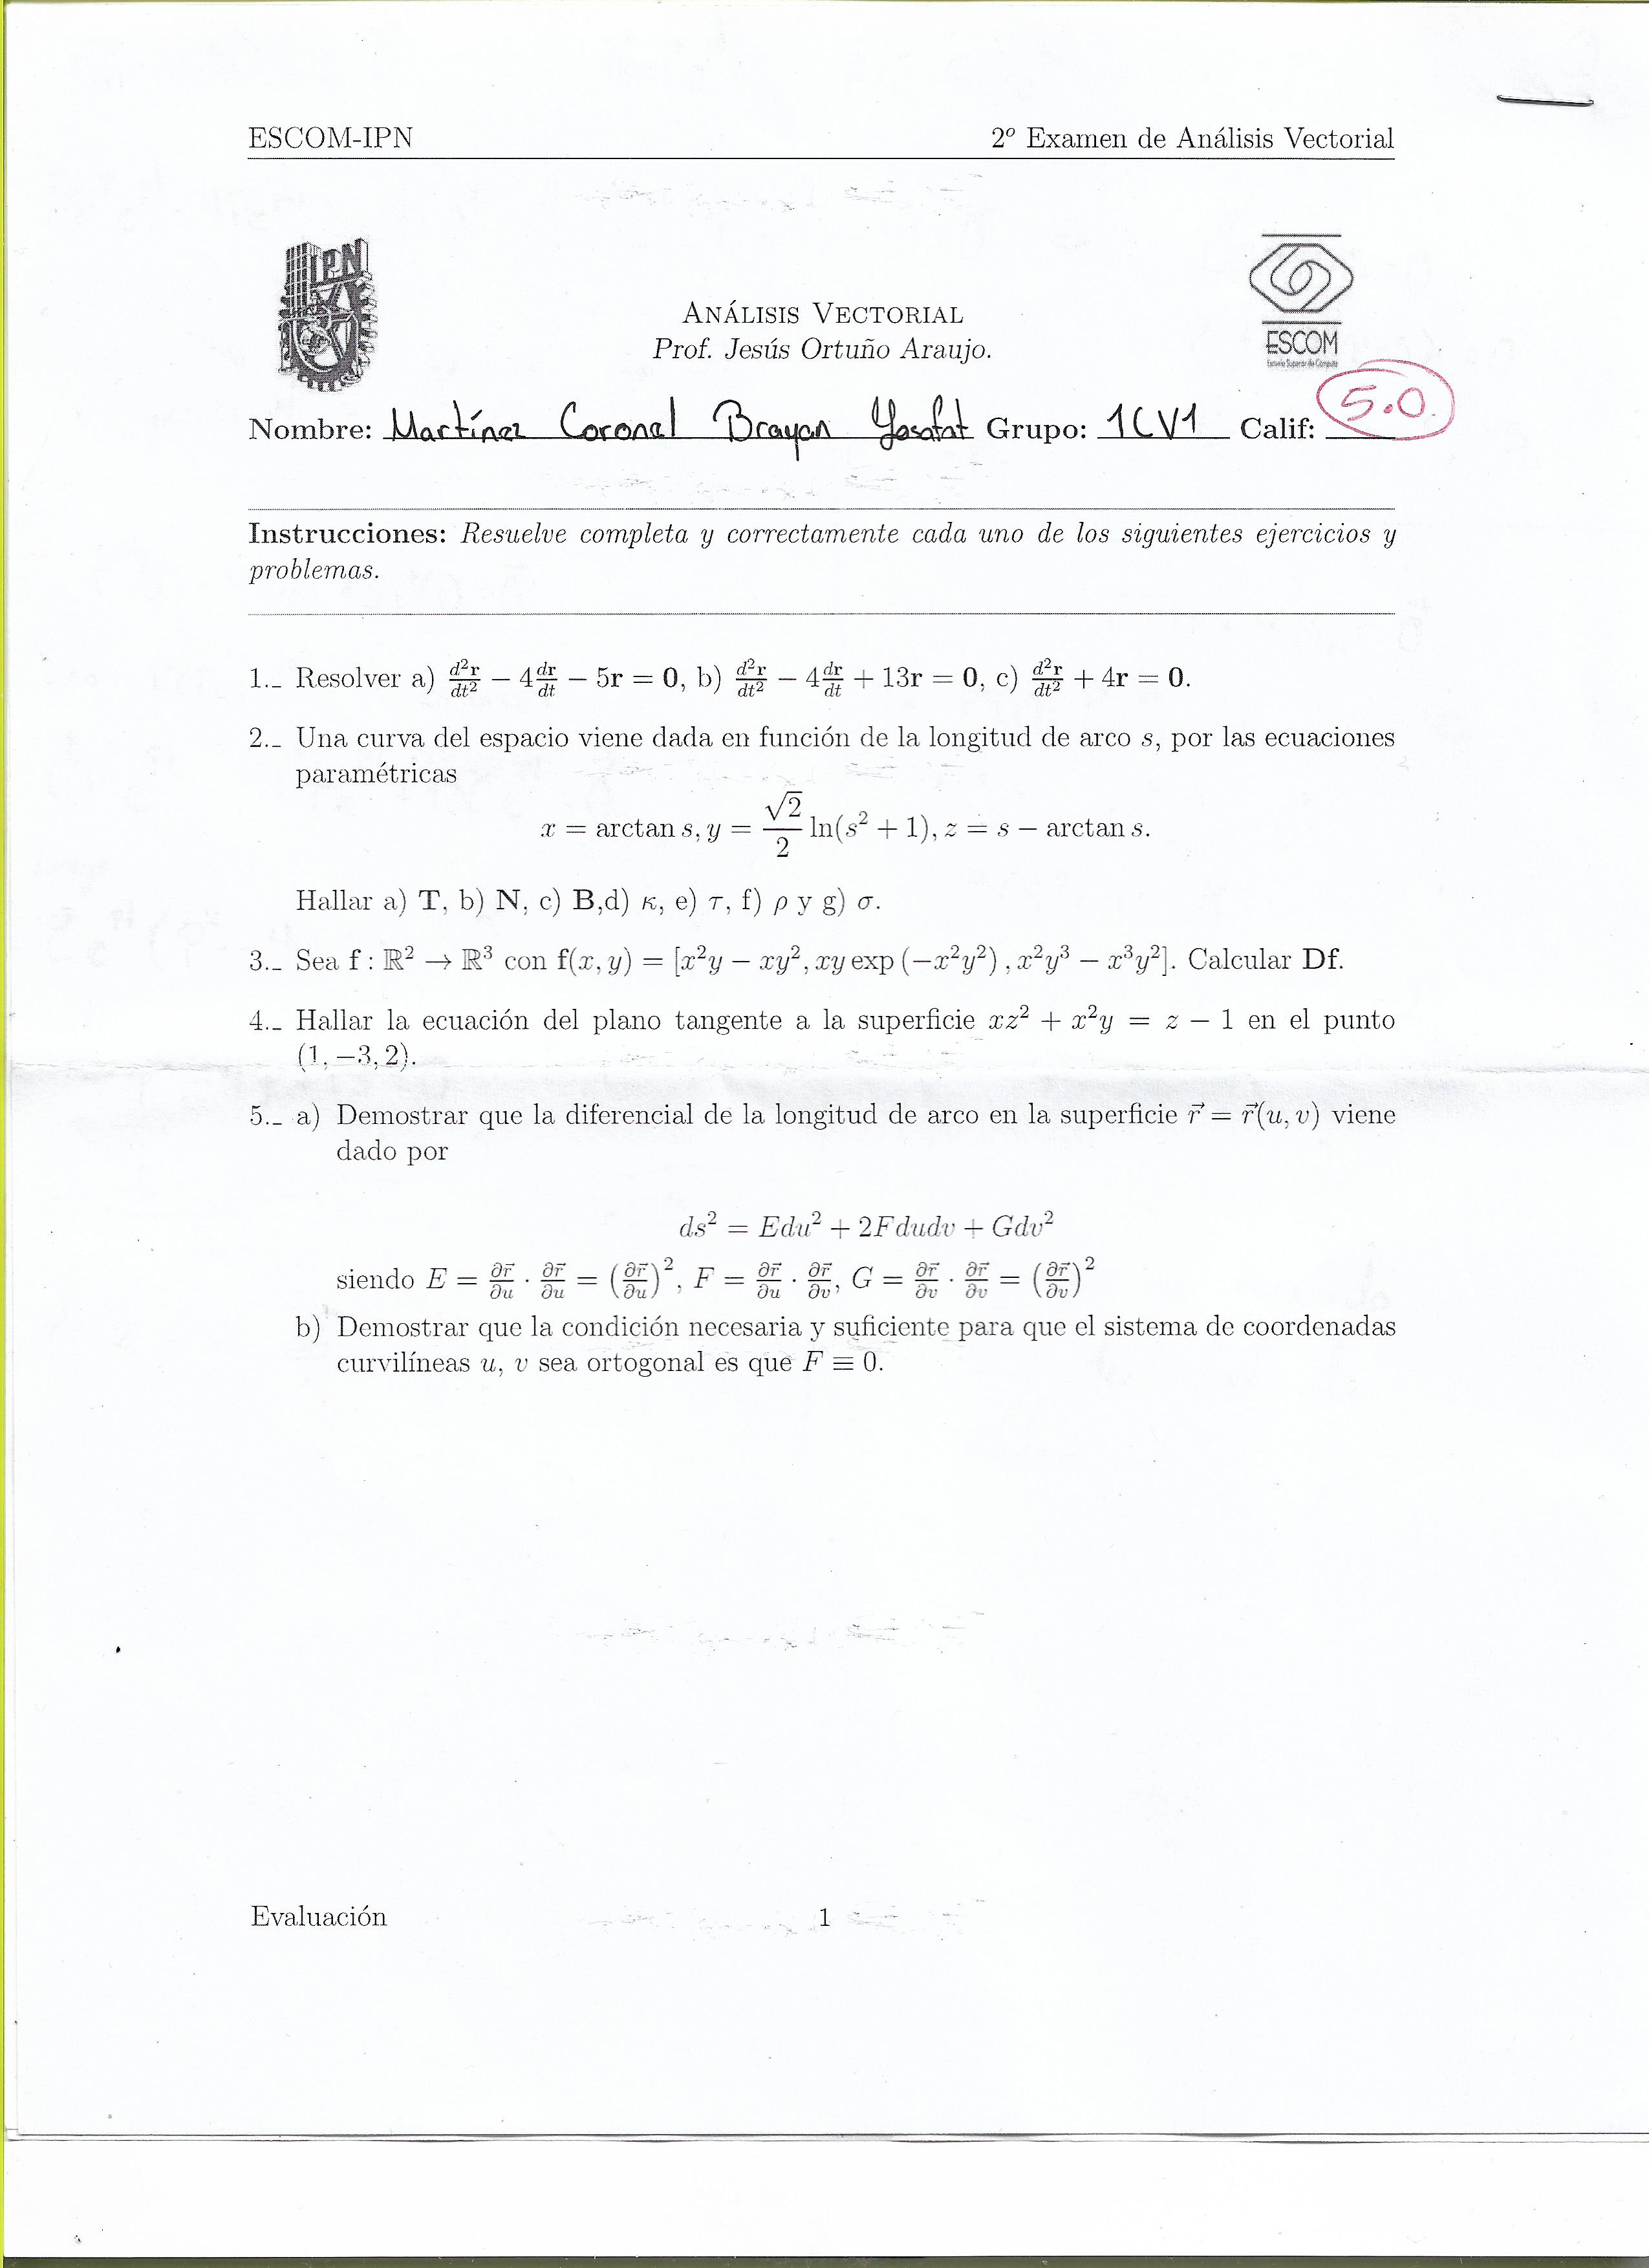 ESCOM-IPN 2º Examen de Análisis Vectorial
IPN
ESCOM
Escuela Superior de Computo
ANÁLISIS VECTORIAL
Prof. Jesús Ortuño Araujo.
Nombre: Martínez Coronel Brayan Yosafat Grupo: 1CV1 Calif: 5.0
Instrucciones: Resuelve completa y correctamente cada uno de los siguientes ejercicios y
problemas.
1._ Resolver a) d²r/dt² − 4 dr/dt − 5r = 0, b) d²r/dt² − 4 dr/dt + 13r = 0, c) d²r/dt² + 4r = 0.
2._ Una curva del espacio viene dada en función de la longitud de arco s, por las ecuaciones
paramétricas
x = arctan s, y = √2/2 ln(s² + 1), z = s − arctan s.
Hallar a) T, b) N, c) B,d) κ, e) τ, f) ρ y g) σ.
3._ Sea f : ℝ² → ℝ³ con f(x, y) = [x²y − xy², xy exp (−x²y²) , x²y³ − x³y²]. Calcular Df.
4._ Hallar la ecuación del plano tangente a la superficie xz² + x²y = z − 1 en el punto
(1, −3, 2).
5._ a) Demostrar que la diferencial de la longitud de arco en la superficie r⃗ = r⃗(u, v) viene
dado por
ds² = Edu² + 2Fdudv + Gdv²
siendo E = ∂r⃗/∂u · ∂r⃗/∂u = (∂r⃗/∂u)², F = ∂r⃗/∂u · ∂r⃗/∂v, G = ∂r⃗/∂v · ∂r⃗/∂v = (∂r⃗/∂v)²
b) Demostrar que la condición necesaria y suficiente para que el sistema de coordenadas
curvilíneas u, v sea ortogonal es que F ≡ 0.
Evaluación 1